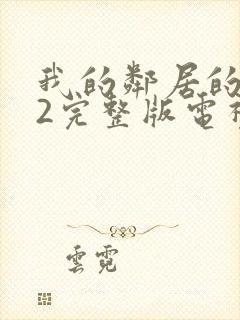 我的鄰居的
2完整版電視
雲霓